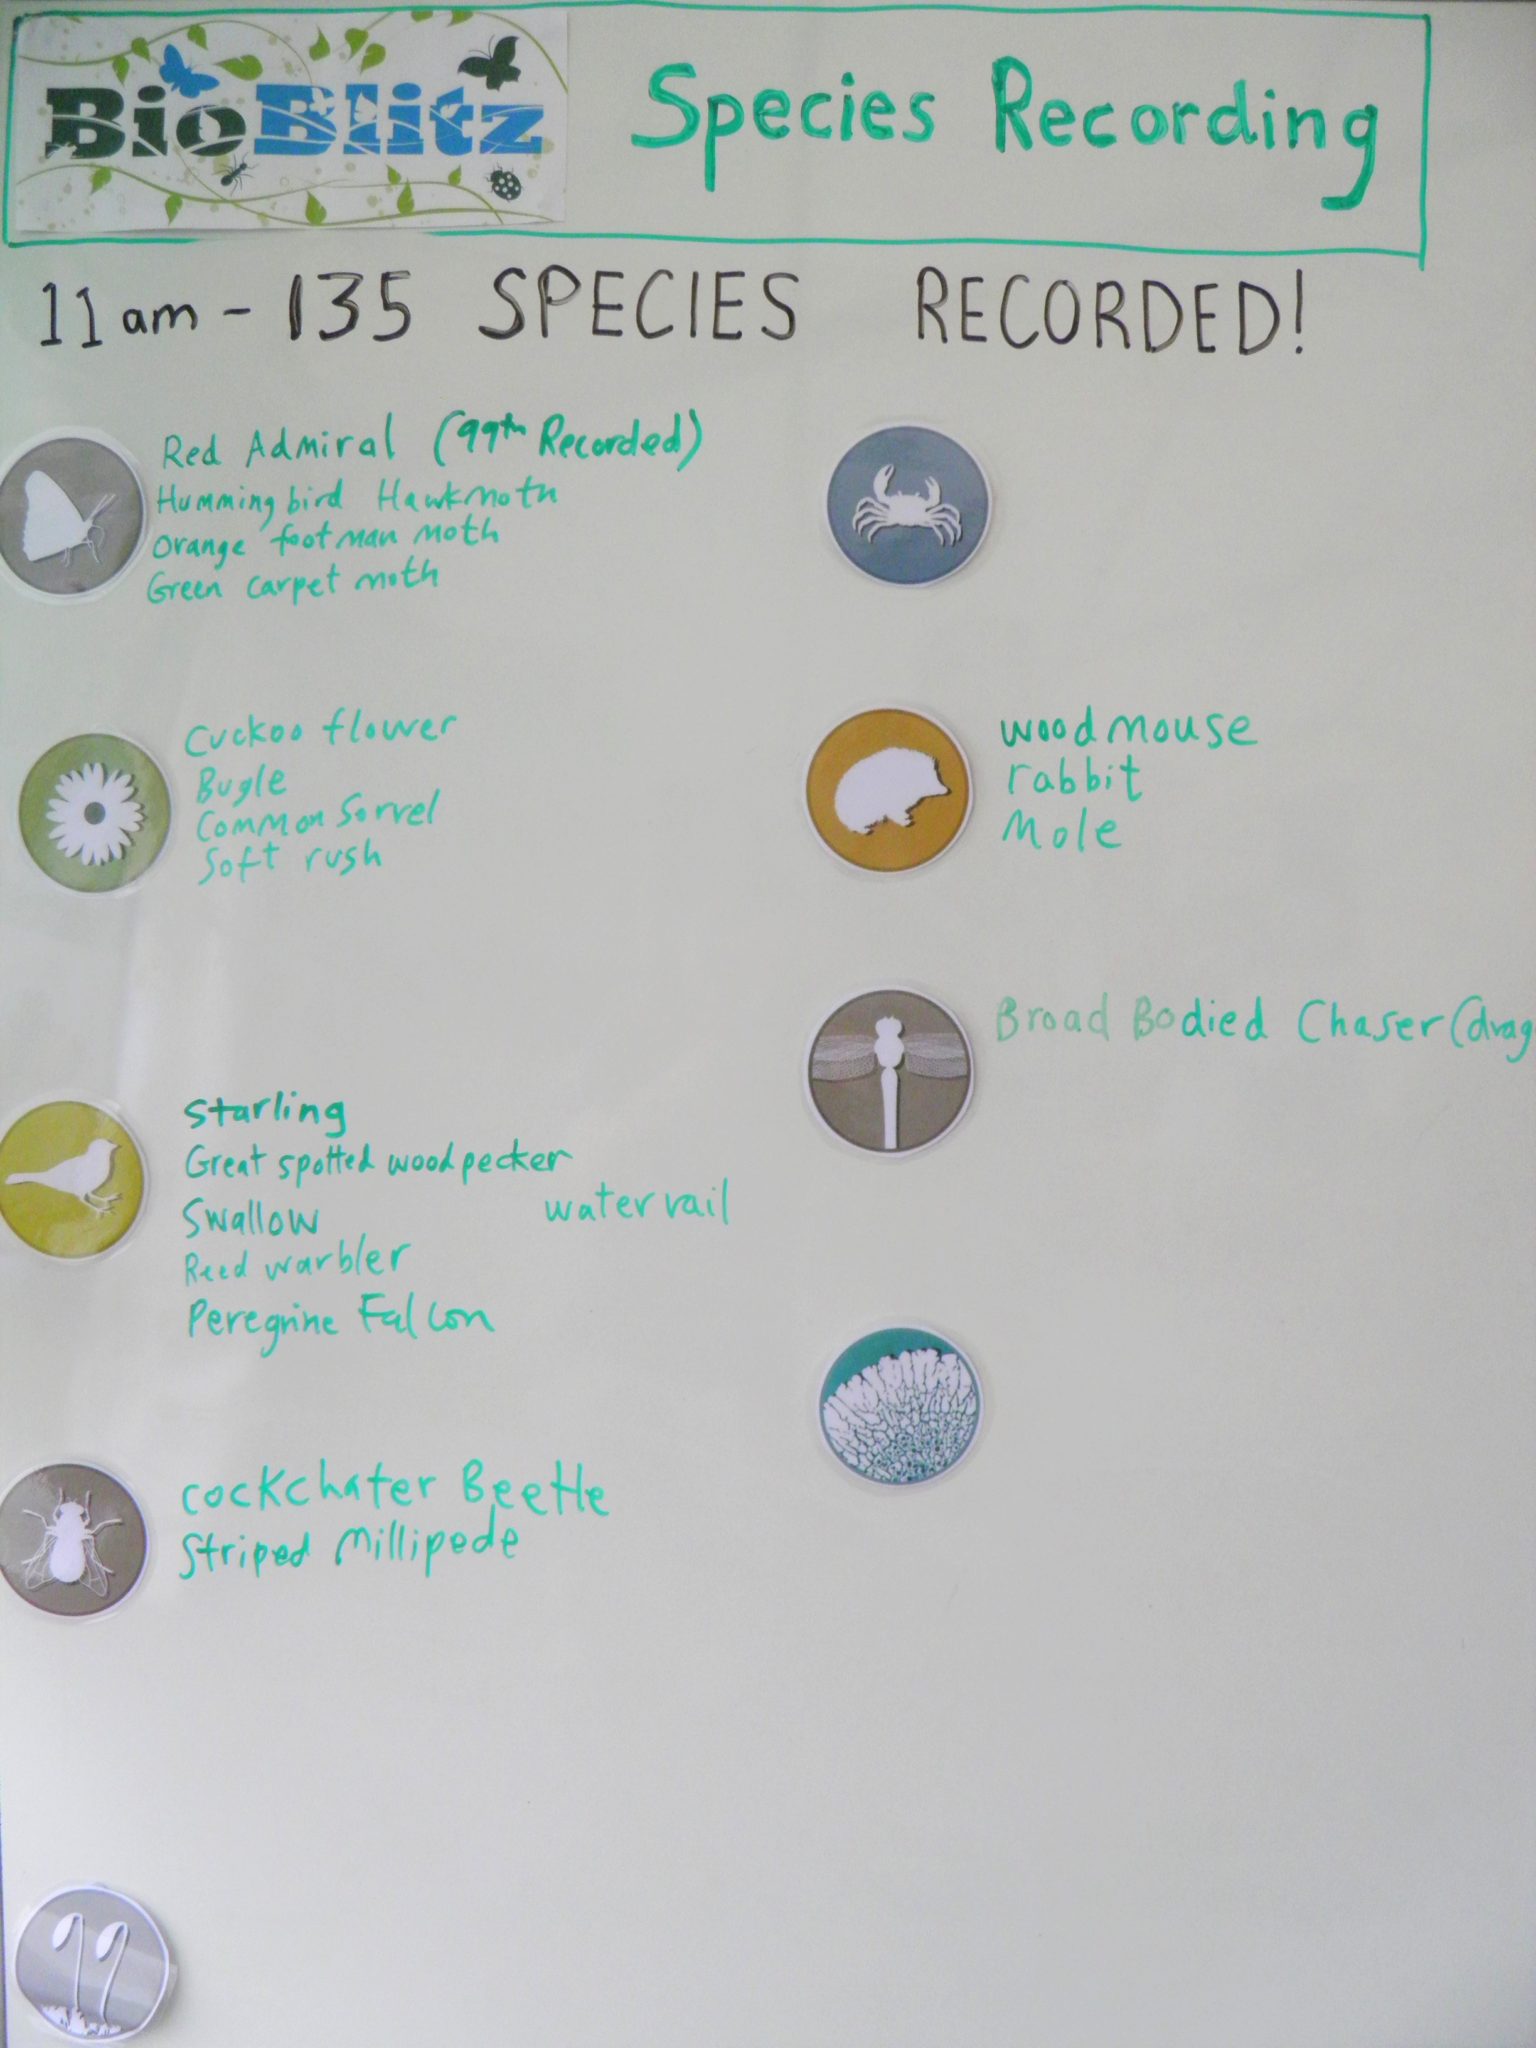 BioBlitz
Species Recording
11am - 135 SPECIES RECORDED!
Red Admiral (99th Recorded)
Humming bird Hawkmoth
Orange footman moth
Green carpet moth
Cuckoo flower
Bugle
Common Sorrel
Soft rush
Starling
Great spotted woodpecker
Swallow
water rail
Reed warbler
Peregrine Falcon
Cockchater Beetle
Striped Millipede
wood mouse
rabbit
Mole
Broad Bodied Chaser (drag